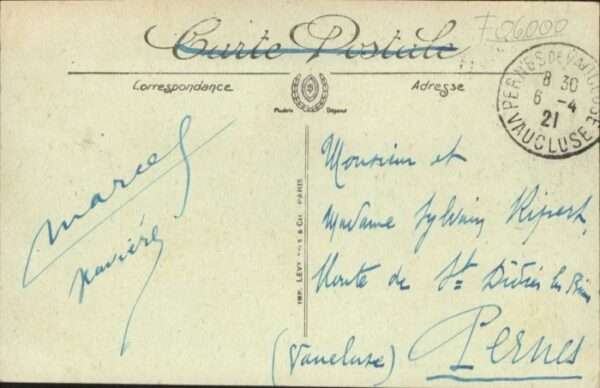 Carte Postale
F Q6000
Correspondance
Adresse
Modèle Déposé
PERNES DE VAUCLUSE
8 30
6 -4
21
VAUCLUSE
Marcel
Xavière
IMP. LEVY FILS & CIE PARIS
Monsieur et
Madame Sylvain Ripert,
Route de St Didier les Bains
Pernes
(Vaucluse)